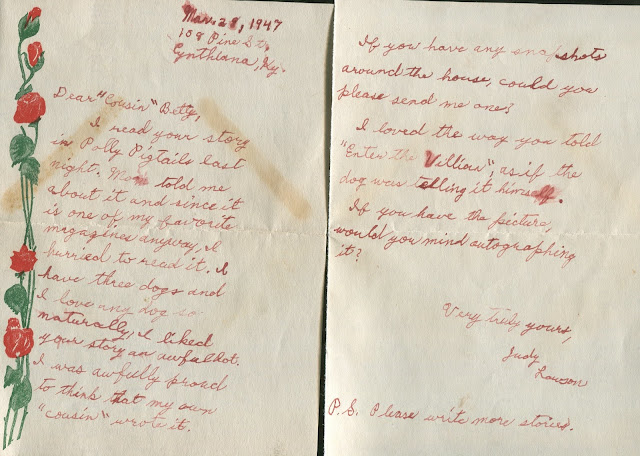 Mar. 28, 1947
108 Pine St.
Cynthiana, Ky.
Dear "Cousin" Betty,
I read your story
in Polly Pigtails last
night. Mom told me
about it and since it
is one of my favorite
magazines anyway, I
hurried to read it. I
have three dogs and
I love any dog so
naturally, I liked
your story an awful lot.
I was awfully proud
to think that my own
"cousin" wrote it.
If you have any snapshots
around the house, could you
please send me one?
I loved the way you told
"Enter the Villian", as if the
dog was telling it himself.
If you have the picture,
would you mind autographing
it?
Very truly yours,
Judy
Lawson
P.S. Please write more stories.